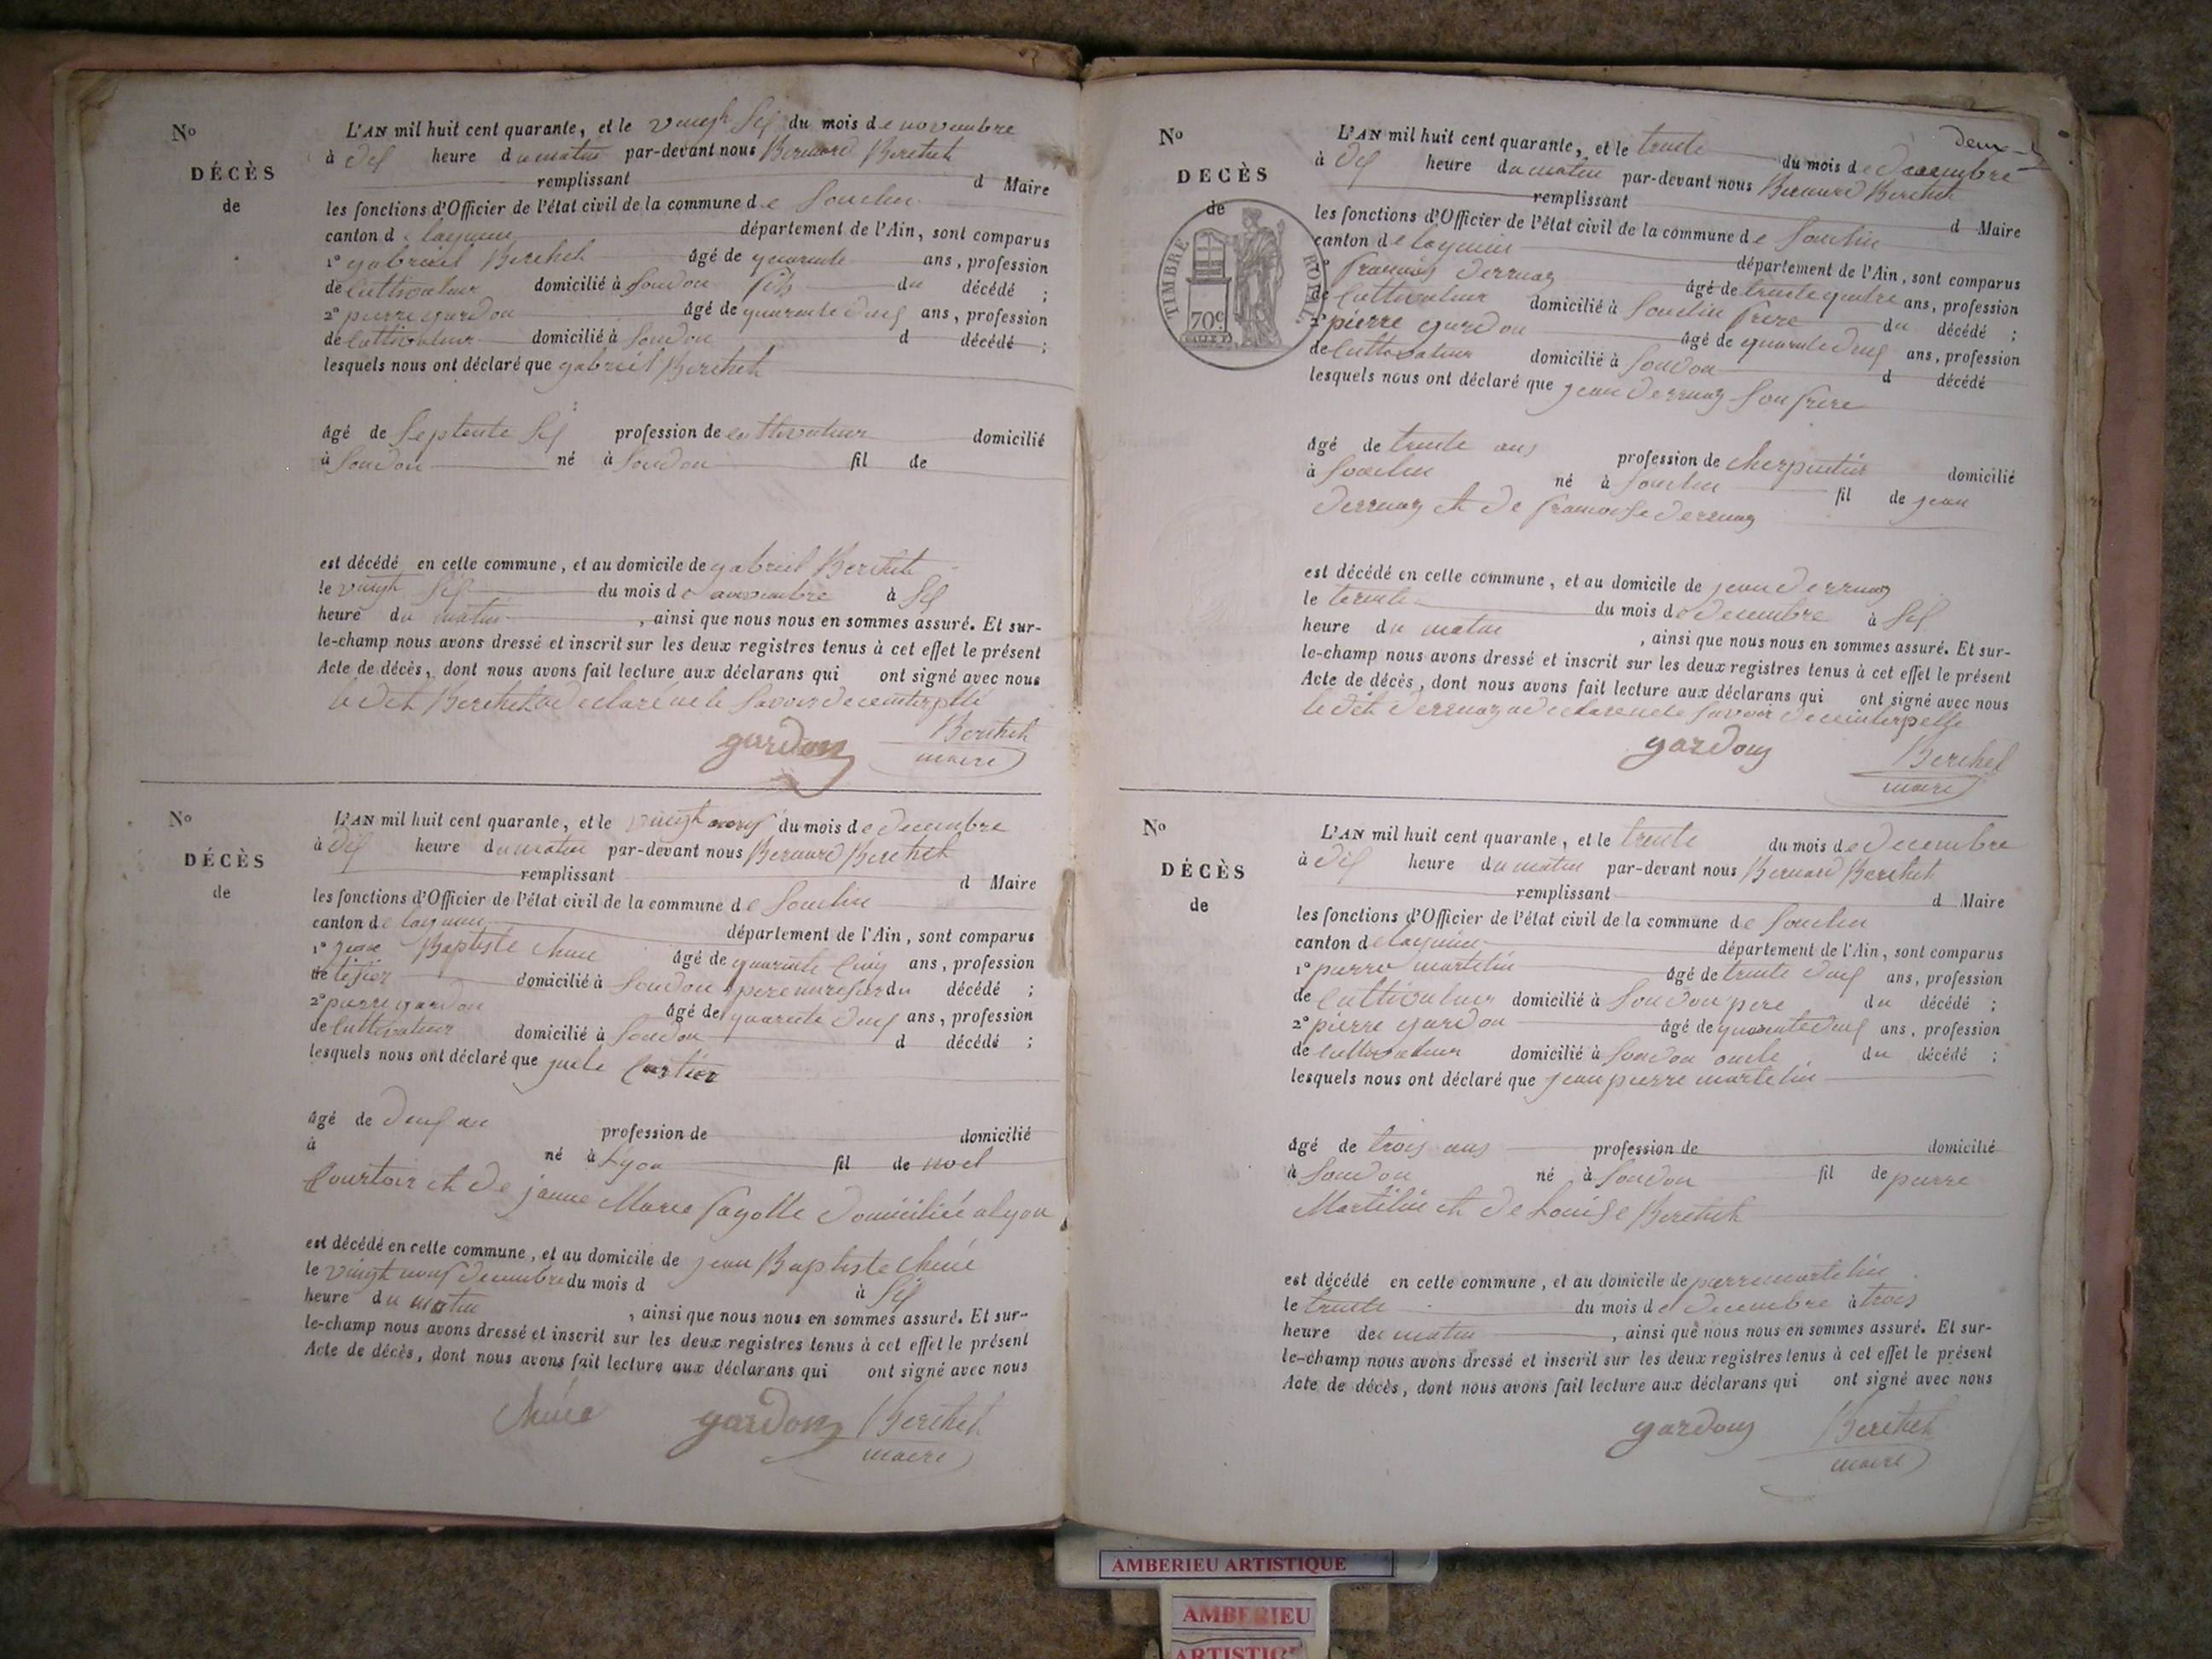 No
DÉCÈS
de
L'AN mil huit cent quarante, et le vingh sis du mois de novembre
à dis heure du matin par-devant nous Bernard Berthet
remplissant d Maire
les fonctions d'Officier de l'état civil de la commune de Souclin
canton de lagnieu département de l'Ain, sont comparus
1° gabriel Berthet âgé de quarente ans, profession
de Cultivateur domicilié à Soudon fils du décédé ;
2° pierre gardon âgé de quarente deus ans, profession
de Cultivateur domicilié à Soudon d décédé ;
lesquels nous ont déclaré que gabriel Berthet
âgé de Septente sis profession de cultivateur domicilié
à Soudon né à Soudon fil de
est décédé en cette commune, et au domicile de gabriel Berthet
le vingh sis du mois de novembre à sis
heure du matin , ainsi que nous nous en sommes assuré. Et sur-
le-champ nous avons dressé et inscrit sur les deux registres tenus à cet effet le présent
Acte de décès, dont nous avons fait lecture aux déclarans qui ont signé avec nous
le dit Berthet a declaré ne le Savoir de ce interpellé
gardon Berthet
maire
No
DÉCÈS
de
L'AN mil huit cent quarante, et le vingh neuf du mois de decembre
à dis heure du matin par-devant nous Bernard Berthet
remplissant d Maire
les fonctions d'Officier de l'état civil de la commune de Souclin
canton de lagnieu département de l'Ain, sont comparus
1° jean Baptiste âgé de quarente Cinq ans, profession
de tisier domicilié à Soudon pere nuresier du décédé ;
2° pierre gardon âgé de quarente deus ans, profession
de Cultivateur domicilié à Soudon d décédé ;
lesquels nous ont déclaré que
âgé de deus an profession de domicilié
à né à Lyon fil de noel
Courtoir et de janne Marie fayolle domiciliée a lyon
est décédé en cette commune, et au domicile de jean Baptiste
le vingh neuf decembre du mois d à sis
heure du matin , ainsi que nous nous en sommes assuré. Et sur-
le-champ nous avons dressé et inscrit sur les deux registres tenus à cet effet le présent
Acte de décès, dont nous avons fait lecture aux déclarans qui ont signé avec nous
gardon Berthet
maire
deux
No
DECÈS
de
TIMBRE ROYAL
70c
L'AN mil huit cent quarante, et le trente du mois de decembre
à dis heure du matin par-devant nous Bernard Berthet
remplissant d Maire
les fonctions d'Officier de l'état civil de la commune de Souclin
canton de lagnieu département de l'Ain, sont comparus
1° francois derruaz âgé de trente quatre ans, profession
de Cultivateur domicilié à Souclin frere du décédé ;
2° pierre gardon âgé de quarente deus ans, profession
de Cultivateur domicilié à Soudon d décédé
lesquels nous ont déclaré que jean derruaz Son frere
âgé de trente ans profession de cherpentier domicilié
à Souclin né à Souclin fil de jean
derruaz et de francoise derruaz
est décédé en cette commune, et au domicile de jean derruaz
le terente du mois de decembre à sis
heure du matin , ainsi que nous nous en sommes assuré. Et sur-
le-champ nous avons dressé et inscrit sur les deux registres tenus à cet effet le présent
Acte de décès, dont nous avons fait lecture aux déclarans qui ont signé avec nous
le dit derruaz a declare ne le Savoir de ce interpelle
gardon Berthet
maire
No
DÉCÈS
de
L'AN mil huit cent quarante, et le trente du mois de decembre
à dis heure du matin par-devant nous Bernard Berthet
remplissant d Maire
les fonctions d'Officier de l'état civil de la commune de Souclin
canton de lagnieu département de l'Ain, sont comparus
1° pierre martelin âgé de trente deus ans, profession
de Cultivateur domicilié à Soudon pere du décédé ;
2° pierre gardon âgé de quarente deus ans, profession
de Cultivateur domicilié à Soudon oncle du décédé ;
lesquels nous ont déclaré que jean pierre martelin
âgé de trois ans profession de domicilié
à Soudon né à Soudon fil de pierre
Martelin et de Louise Berthet
est décédé en cette commune, et au domicile de pierre martelin
le trente du mois de decembre à trois
heure de matin , ainsi que nous nous en sommes assuré. Et sur-
le-champ nous avons dressé et inscrit sur les deux registres tenus à cet effet le présent
Acte de décès, dont nous avons fait lecture aux déclarans qui ont signé avec nous
gardon Berthet
maire
AMBERIEU ARTISTIQUE
AMBERIEU
ARTISTIQUE